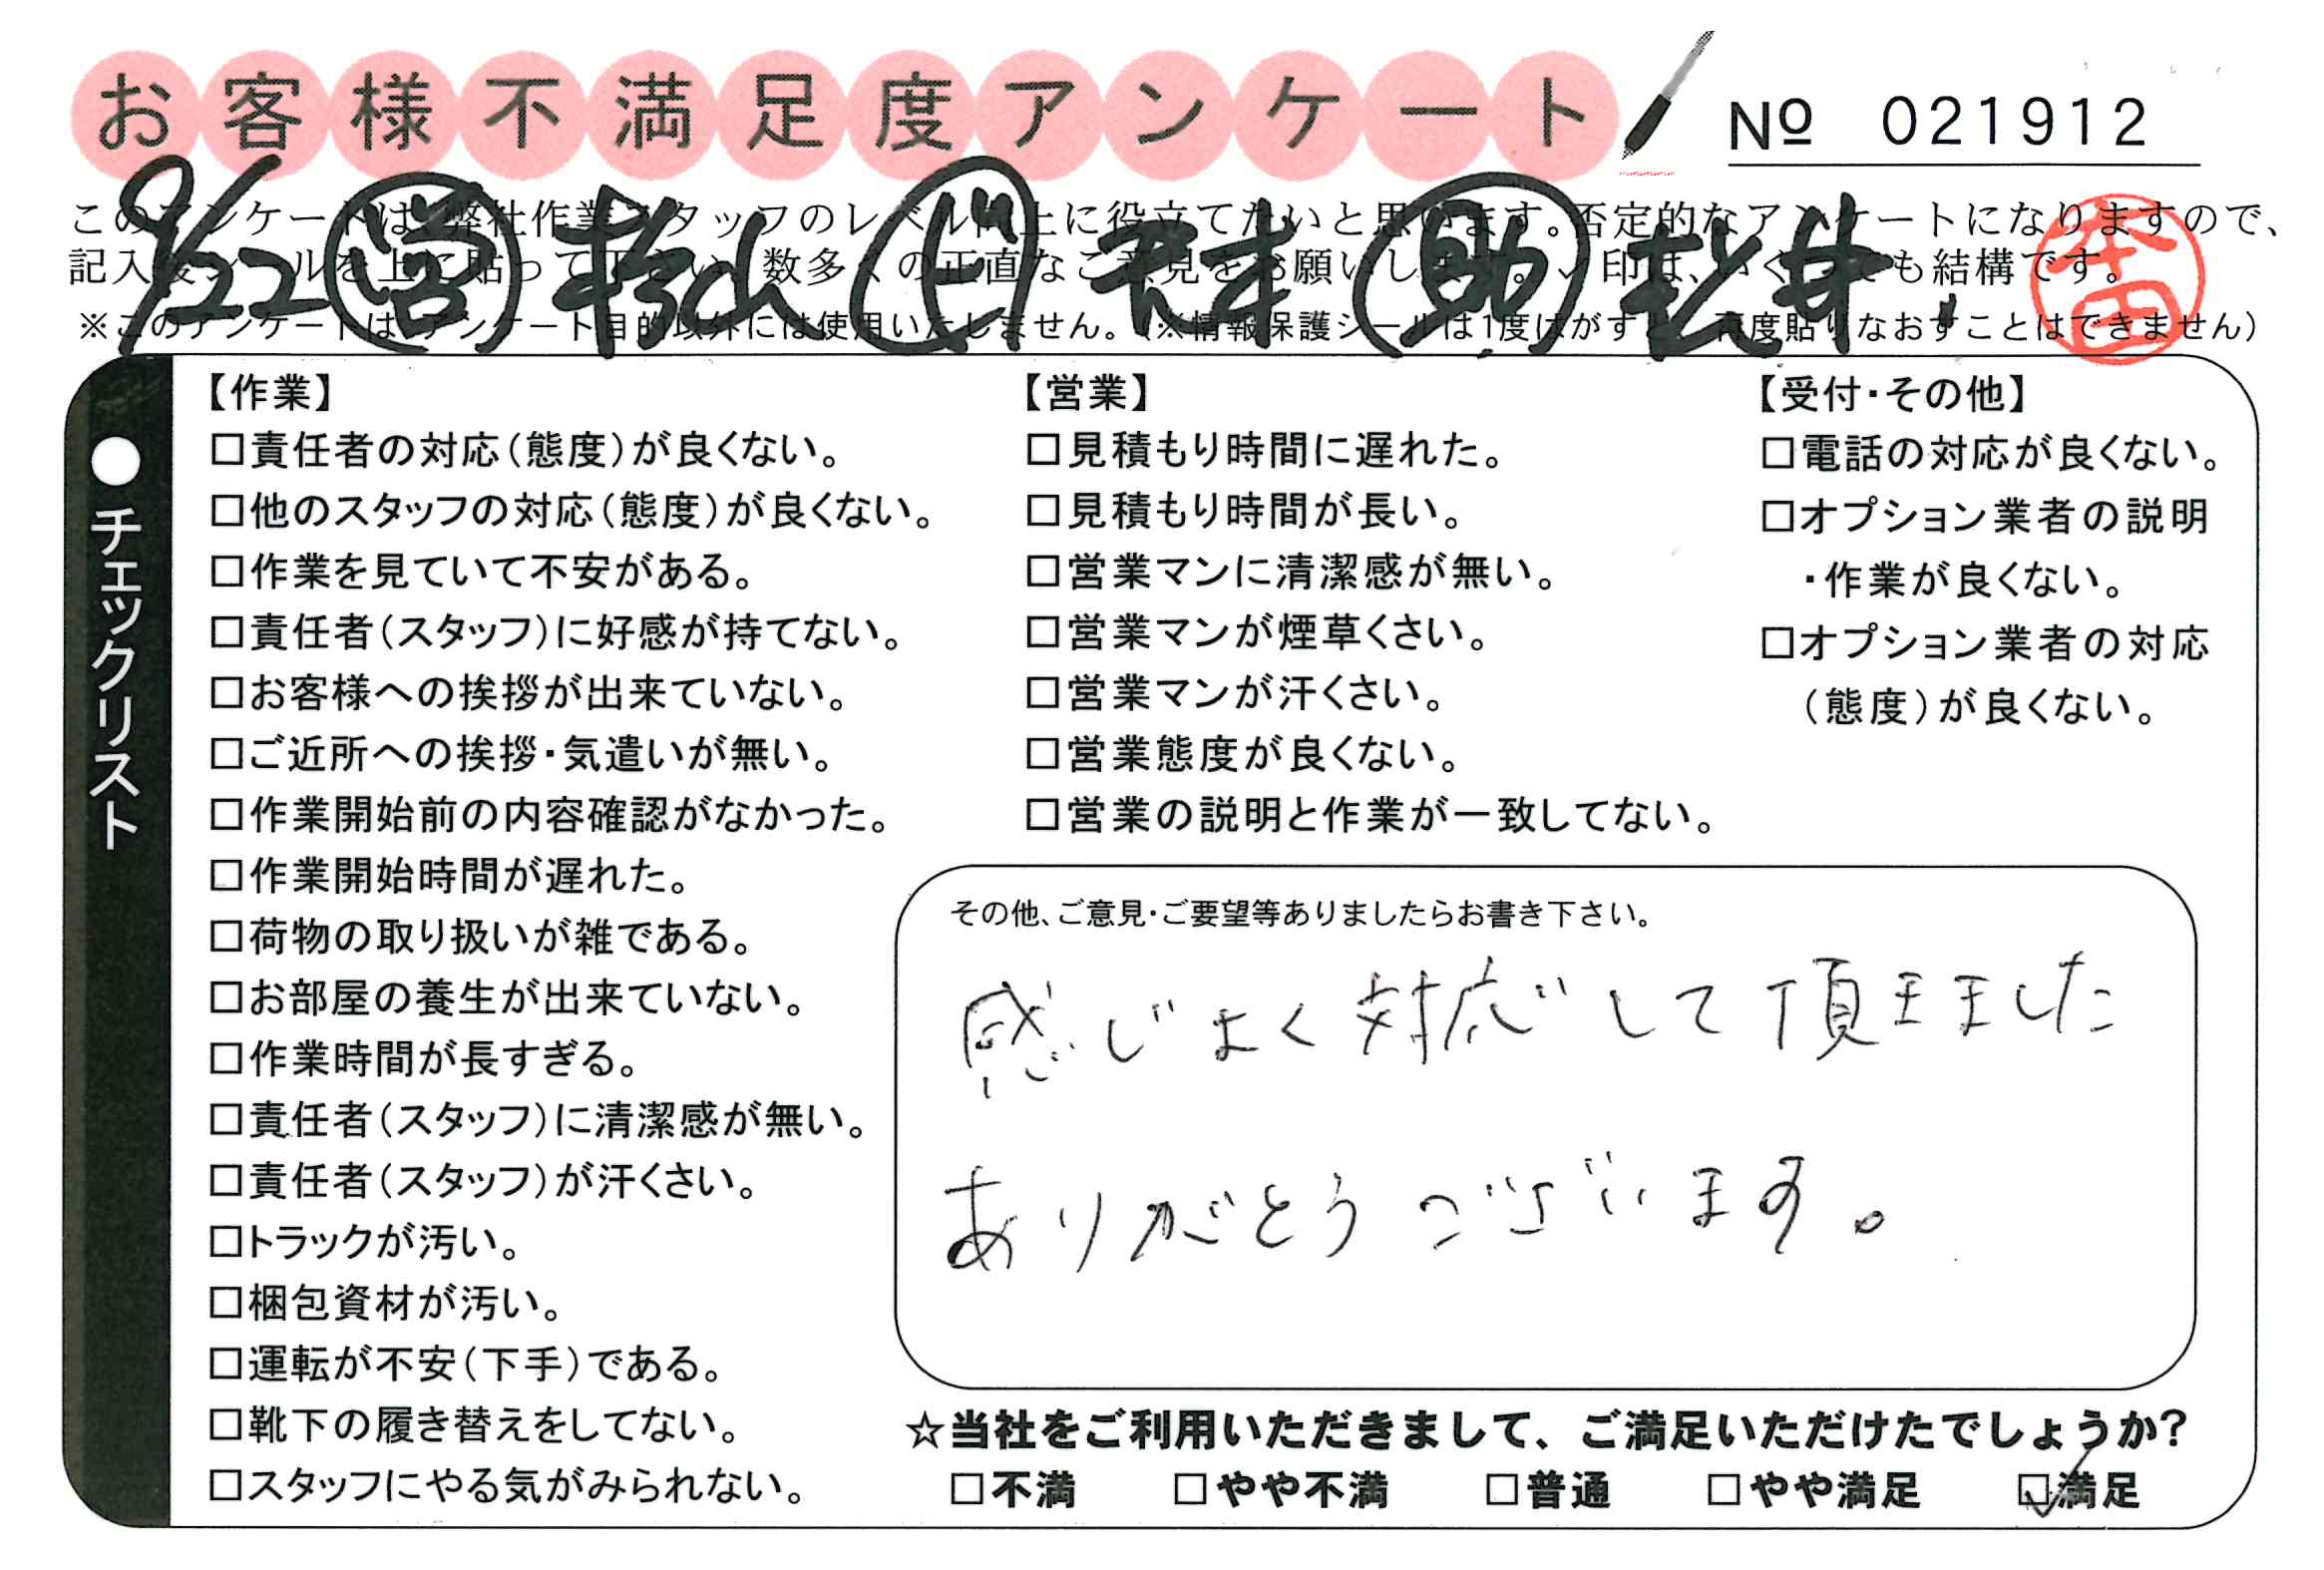 お客様不満足度アンケート
№ 021912
9/22 営 杉山 ド 沢村 助 松井
本田
このアンケートは、弊社作業スタッフのレベル向上に役立てたいと思います。否定的なアンケートになりますので、
記入後シールを上に貼って下さい。数多くの正直なご意見をお願いします。✓印は、いくつでも結構です。
※このアンケートは、アンケート目的以外には使用いたしません。（※情報保護シールは1度はがすと、再度貼りなおすことはできません）
●チェックリスト
【作業】
□責任者の対応（態度）が良くない。
□他のスタッフの対応（態度）が良くない。
□作業を見ていて不安がある。
□責任者（スタッフ）に好感が持てない。
□お客様への挨拶が出来ていない。
□ご近所への挨拶・気遣いが無い。
□作業開始前の内容確認がなかった。
□作業開始時間が遅れた。
□荷物の取り扱いが雑である。
□お部屋の養生が出来ていない。
□作業時間が長すぎる。
□責任者（スタッフ）に清潔感が無い。
□責任者（スタッフ）が汗くさい。
□トラックが汚い。
□梱包資材が汚い。
□運転が不安（下手）である。
□靴下の履き替えをしてない。
□スタッフにやる気がみられない。
【営業】
□見積もり時間に遅れた。
□見積もり時間が長い。
□営業マンに清潔感が無い。
□営業マンが煙草くさい。
□営業マンが汗くさい。
□営業態度が良くない。
□営業の説明と作業が一致してない。
【受付・その他】
□電話の対応が良くない。
□オプション業者の説明
・作業が良くない。
□オプション業者の対応
（態度）が良くない。
その他、ご意見・ご要望等ありましたらお書き下さい。
感じよく対応して頂きました
ありがとうございます。
☆当社をご利用いただきまして、ご満足いただけたでしょうか？
□不満 □やや不満 □普通 □やや満足 ☑満足